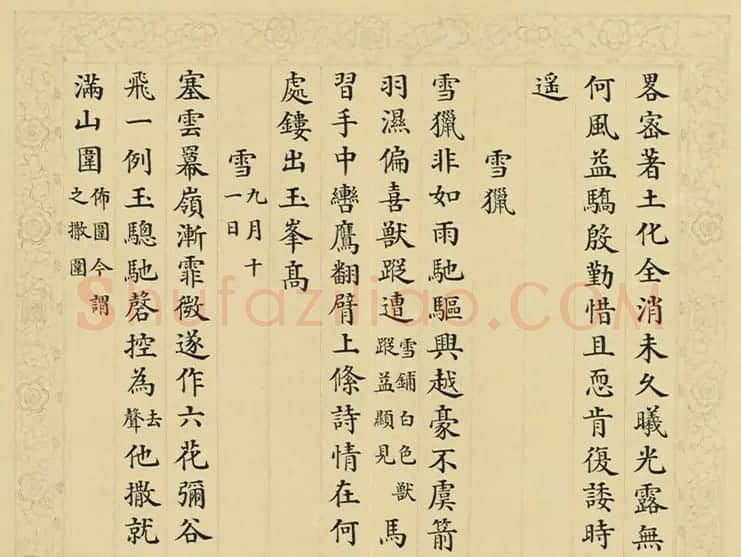 畧密著土化全消未久曦光露無
何風益驕殷勤惜且恧肯復諉時
遥
雪獵
雪獵非如雨馳驅興越豪不虞箭
羽濕偏喜獸蹤遭雪鋪白色獸蹤益顯見馬
習手中轡鷹翻臂上絛詩情在何
處鏤出玉峯髙
雪九月十一日
塞雲羃嶺漸霏微遂作六花彌谷
飛一例玉驄馳磬控為去聲他撒就
滿山圍佈圍今謂之撒圍
Shufaziliao.COM